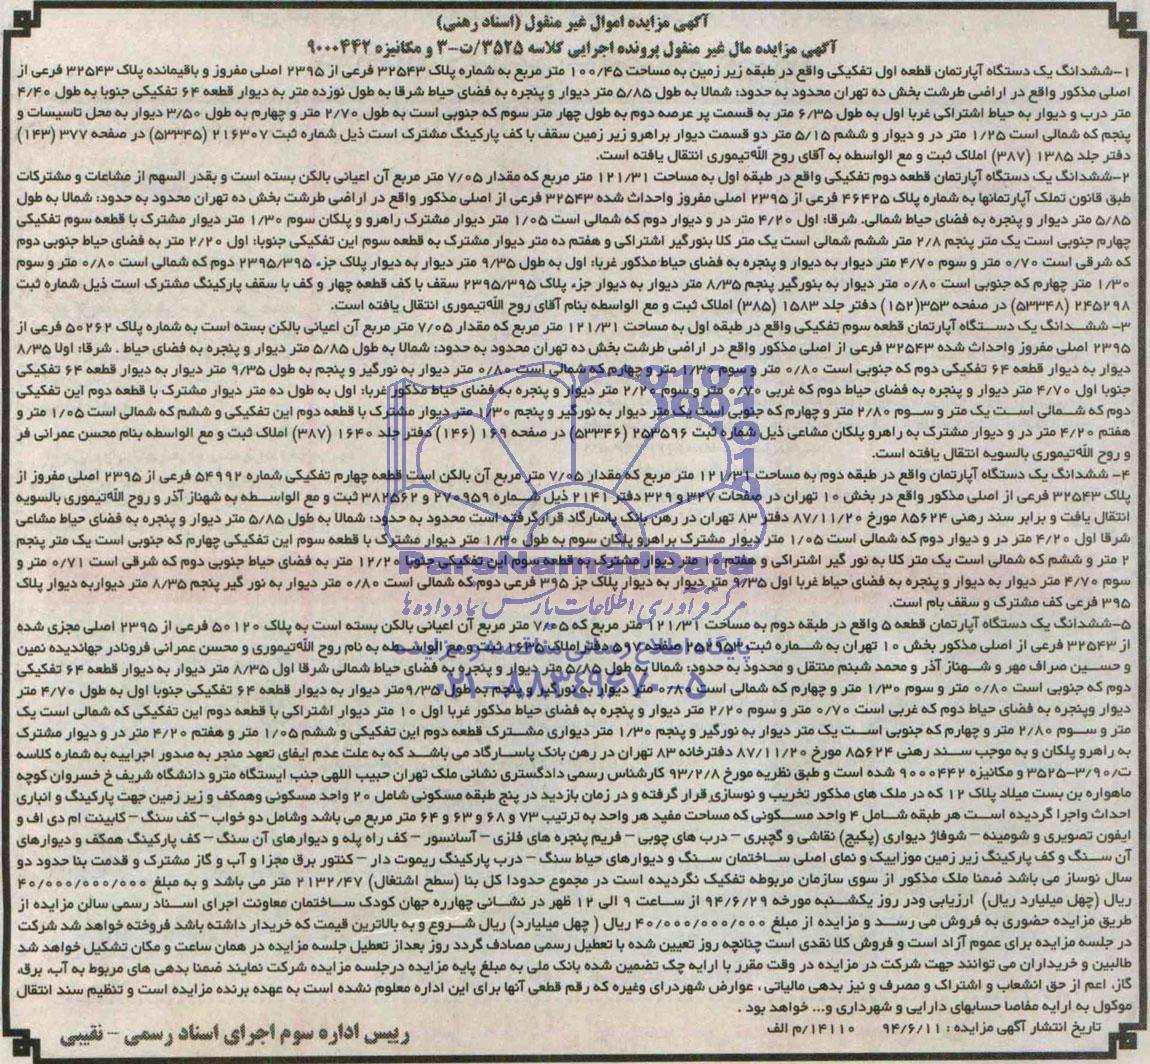 آگهی مزایده اموال غیر منقول (اسناد رهنی)
آگهی مزایده مال غیر منقول پرونده اجرایی کلاسه ۳۵۲۵/ت-۳ و مکانیزه ۹۰۰۰۴۴۲
۱-ششدانگ یک دستگاه آپارتمان قطعه اول تفکیکی واقع در طبقه زیر زمین به مساحت ۱۰۰/۴۵ متر مربع به شماره پلاک ۳۲۵۴۳ فرعی از ۲۳۹۵ اصلی مفروز و باقیمانده پلاک ۳۲۵۴۳ فرعی از
اصلی مذکور واقع در اراضی طرشت بخش ده تهران محدود به حدود: شمالا به طول ۵/۸۵ متر دیوار و پنجره به فضای حیاط شرقا به طول نوزده متر به دیوار قطعه ۶۴ تفکیکی جنوبا به طول ۴/۴۰
متر درب و دیوار به حیاط اشتراکی غربا اول به طول ۶/۳۵ متر به قسمت پر عرصه دوم به طول چهار متر سوم که جنوبی است به طول ۲/۷۰ متر و چهارم به طول ۳/۵۰ دیوار به محل تاسیسات و
پنجم که شمالی است ۱/۲۵ متر در و دیوار و ششم ۵/۱۵ متر دو قسمت دیوار براهرو زیر زمین سقف با کف پارکینگ مشترک است ذیل شماره ثبت ۲۱۶۳۰۷ (۵۳۳۴۵) در صفحه ۳۷۷ (۱۴۳)
دفتر جلد ۱۳۸۵ (۳۸۷) املاک ثبت و مع الواسطه به آقای روح الله‌تیموری انتقال یافته است.
۲-ششدانگ یک دستگاه آپارتمان قطعه دوم تفکیکی واقع در طبقه اول به مساحت ۱۲۱/۳۱ متر مربع که مقدار ۷/۰۵ متر مربع آن اعیانی بالکن بسته است و بقدر السهم از مشاعات و مشترکات
طبق قانون تملک آپارتمانها به شماره پلاک ۴۶۴۲۵ فرعی از ۲۳۹۵ اصلی مفروز واحداث شده ۳۲۵۴۳ فرعی از اصلی مذکور واقع در اراضی طرشت بخش ده تهران محدود به حدود: شمالا به طول
۵/۸۵ متر دیوار و پنجره به فضای حیاط شمالی. شرقا: اول ۴/۲۰ متر در و دیوار دوم که شمالی است ۱/۰۵ متر دیوار مشترک راهرو و پلکان سوم ۱/۳۰ متر دیوار مشترک با قطعه سوم تفکیکی
چهارم جنوبی است یک متر پنجم ۲/۸ متر ششم شمالی است یک متر کلا بنورگیر اشتراکی و هفتم ده متر دیوار مشترک به قطعه سوم این تفکیکی جنوبا: اول ۲/۲۰ متر به فضای حیاط جنوبی دوم
که شرقی است ۰/۷۰ متر و سوم ۴/۷۰ متر دیوار به دیوار و پنجره به فضای حیاط مذکور غربا: اول به طول ۹/۳۵ متر دیوار به دیوار پلاک جزء ۲۳۹۵/۳۹۵ دوم که شمالی است ۰/۸۰ متر و سوم
۱/۳۰ متر چهارم که جنوبی است ۰/۸۰ متر دیوار به بنورگیر پنجم ۸/۳۵ متر دیوار به دیوار جزء پلاک ۲۳۹۵/۳۹۵ سقف با کف قطعه چهار و کف با سقف پارکینگ مشترک است ذیل شماره ثبت
۲۴۵۲۹۸ (۵۳۳۴۸) در صفحه ۳۵۳(۱۵۲) دفتر جلد ۱۵۸۳ (۳۸۵) املاک ثبت و مع الواسطه بنام آقای روح الله‌تیموری انتقال یافته است.
۳- ششدانگ یک دستگاه آپارتمان قطعه سوم تفکیکی واقع در طبقه اول به مساحت ۱۲۱/۳۱ متر مربع که مقدار ۷/۰۵ متر مربع آن اعیانی بالکن بسته است به شماره پلاک ۵۰۲۶۲ فرعی از
۲۳۹۵ اصلی مفروز واحداث شده ۳۲۵۴۳ فرعی از اصلی مذکور واقع در اراضی طرشت بخش ده تهران محدود به حدود: شمالا به طول ۵/۸۵ متر دیوار و پنجره به فضای حیاط . شرقا: اولا ۸/۳۵
دیوار به دیوار قطعه ۶۴ تفکیکی دوم که جنوبی است ۰/۸۰ متر و سوم ۱/۳۰ متر و چهارم که شمالی است ۰/۸۰ متر دیوار به نورگیر و پنجم به طول ۹/۳۵ متر دیوار به دیوار قطعه ۶۴ تفکیکی
جنوبا اول ۴/۷۰ متر دیوار و پنجره به فضای حیاط دوم که غربی ۰/۷۰ متر و سوم ۲/۲۰ متر دیوار و پنجره به فضای حیاط مذکور غربا: اول به طول ده متر دیوار مشترک با قطعه دوم این تفکیکی
دوم که شمالی است یک متر و سوم ۲/۸۰ متر و چهارم که جنوبی است یک متر دیوار به نورگیر و پنجم ۱/۳۰ متر دیوار مشترک با قطعه دوم این تفکیکی و ششم که شمالی است ۱/۰۵ متر و
هفتم ۴/۲۰ متر در و دیوار مشترک به راهرو پلکان مشاعی ذیل شماره ثبت ۲۵۳۵۹۶ (۵۳۳۴۶) در صفحه ۱۶۹ (۱۴۶) دفتر جلد ۱۶۴۰ (۳۸۷) املاک ثبت و مع الواسطه بنام محسن عمرانی فر
و روح الله‌تیموری بالسویه انتقال یافته است.
۴- ششدانگ یک دستگاه آپارتمان واقع در طبقه دوم به مساحت ۱۲۱/۳۱ متر مربع که مقدار ۷/۰۵ متر مربع آن بالکن است قطعه چهارم تفکیکی شماره ۵۴۹۹۲ فرعی از ۲۳۹۵ اصلی مفروز از
پلاک ۳۲۵۴۳ فرعی از اصلی مذکور واقع در بخش ۱۰ تهران در صفحات ۳۲۷ و ۳۲۹ دفتر ۲۱۴۱ ذیل شماره ۲۷۰۹۵۹ و ۳۸۲۵۶۲ ثبت و مع الواسطه به شهناز آذر و روح الله‌تیموری بالسویه
انتقال یافت و برابر سند رهنی ۸۵۶۲۴ مورخ ۸۷/۱۱/۲۰ دفتر ۸۳ تهران در رهن بانک پاسارگاد قرارگرفته است محدود به حدود: شمالا به طول ۵/۸۵ متر دیوار و پنجره به فضای حیاط مشاعی
شرقا اول ۴/۲۰ متر در و دیوار دوم که شمالی است ۱/۰۵ متر دیوار مشترک براهرو پلکان سوم به طول ۱/۳۰ متر دیوار مشترک با قطعه سوم این تفکیکی چهارم که جنوبی است یک متر پنجم
۲ متر و ششم که شمالی است یک متر کلا به نور گیر اشتراکی و هفتم ۱۰ متر دیوار مشترک به قطعه سوم این تفکیکی جنوبا ۱۲/۲۰ متر به فضای حیاط جنوبی دوم که شرقی است ۰/۷۱ متر و
سوم ۴/۷۰ متر دیوار به دیوار و پنجره به فضای حیاط غربا اول ۹/۳۵ متر دیوار به دیوار پلاک جز ۳۹۵ فرعی دوم که شمالی است ۰/۸۰ متر دیوار به نور گیر پنجم ۸/۳۵ متر دیواربه دیوار پلاک
۳۹۵ فرعی کف مشترک و سقف بام است.
۵-ششدانگ یک دستگاه آپارتمان قطعه ۵ واقع در طبقه دوم به مساحت ۱۲۱/۳۱ متر مربع که ۷/۰۵ متر مربع آن اعیانی بالکن بسته است به پلاک ۵۰۱۲۰ فرعی از ۲۳۹۵ اصلی مجزی شده
از ۳۲۵۴۳ فرعی از اصلی مذکور بخش ۱۰ تهران به شماره ثبت ۲۵۲۹۵۳ صفحه ۵۹۷ دفتر املاک ۱۶۳۵ ثبت و مع الواسطه به نام روح الله‌تیموری و محسن عمرانی فرونادر جهاندیده نمین
و حسین صراف مهر و شهناز آذر و محمد شبنم منتقل و محدود به حدود: شمالا به طول ۵/۸۵ متر دیوار و پنجره به فضای حیاط شمالی شرقا اول ۸/۳۵ متر دیوار به دیوار قطعه ۶۴ تفکیکی
دوم که جنوبی است ۰/۸۰ متر و سوم ۱/۳۰ متر و چهارم که شمالی است ۰/۸۰ متر دیوار به نورگیر و پنجم به طول ۹/۳۵متر دیوار به دیوار قطعه ۶۴ تفکیکی جنوبا اول به طول ۴/۷۰ متر
دیوار وپنجره به فضای حیاط دوم که غربی است ۰/۷۰ متر و سوم ۲/۲۰ متر دیوار و پنجره به فضای حیاط مذکور غربا اول ۱۰ متر دیوار اشتراکی با قطعه دوم این تفکیکی که شمالی است یک
متر و سوم ۲/۸۰ متر و چهارم که جنوبی است یک متر دیوار به نورگیر و پنجم ۱/۳۰ متر دیواری مشترک قطعه دوم این تفکیکی و ششم ۱/۰۵ متر و هفتم ۴/۲۰ متر در و دیوار مشترک
به راهرو پلکان و به موجب سند رهنی ۸۵۶۲۴ مورخ ۸۷/۱۱/۲۰ دفترخانه ۸۳ تهران در رهن بانک پاسارگاد می باشد که به علت عدم ایفای تعهد منجر به صدور اجراییه به شماره کلاسه
ت/۳/۹۰-۳۵۲۵ و مکانیزه ۹۰۰۰۴۴۲ شده است و طبق نظریه مورخ ۹۳/۲/۸ کارشناس رسمی دادگستری نشانی ملک تهران حبیب اللهی جنب ایستگاه مترو دانشگاه شریف خ خسروان کوچه
ماهواره بن بست میلاد پلاک ۱۲ که در ملک های مذکور تخریب و نوسازی قرار گرفته و در زمان بازدید در پنج طبقه مسکونی شامل ۲۰ واحد مسکونی وهمکف و زیر زمین جهت پارکینگ و انباری
احداث واجرا گردیده است هر طبقه شامل ۴ واحد مسکونی که مساحت مفید هر واحد به ترتیب ۷۳ و ۶۸ و ۶۳ و ۶۴ متر مربع می باشد وشامل دو خواب - کف سنگ - کابینت ام دی اف و
ایفون تصویری و شومینه - شوفاژ دیواری (پکیج) نقاشی و گچبری - درب های چوبی - فریم پنجره های فلزی - آسانسور - کف راه پله و دیوارهای آن سنگ - کف پارکینگ همکف و دیوارهای
آن سنگ و کف پارکینگ زیر زمین موزاییک و نمای اصلی ساختمان سنگ و دیوارهای حیاط سنگ - درب پارکینگ ریموت دار - کنتور برق مجزا و آب و گاز مشترک و قدمت بنا حدود دو
سال نوساز می باشد ضمنا ملک مذکور از سوی سازمان مربوطه تفکیک نگردیده است در مجموع حدودا کل بنا (سطح اشتغال) ۲۱۳۲/۴۷ متر می باشد و به مبلغ ۴۰/۰۰۰/۰۰۰/۰۰۰
ریال (چهل میلیارد ریال) ارزیابی ودر روز یکشنبه مورخه ۹۴/۶/۲۹ از ساعت ۹ الی ۱۲ ظهر در نشانی چهارره جهان کودک ساختمان معاونت اجرای اسناد رسمی سالن مزایده از
طریق مزایده حضوری به فروش می رسد و مزایده از مبلغ ۴۰/۰۰۰/۰۰۰/۰۰۰ ریال ( چهل میلیارد) ریال شروع و به بالاترین قیمت که خریدار داشته باشد فروخته خواهد شد شرکت
در جلسه مزایده برای عموم آزاد است و فروش کلا نقدی است چنانچه روز تعیین شده با تعطیل رسمی مصادف گردد روز بعداز تعطیل جلسه مزایده در همان ساعت و مکان تشکیل خواهد شد
طالبین و خریداران می توانند جهت شرکت در مزایده در وقت مقرر با ارایه چک تضمین شده بانک ملی به مبلغ پایه مزایده درجلسه مزایده شرکت نمایند ضمنا بدهی های مربوط به آب، برق،
گاز، اعم از حق انشعاب و اشتراک و مصرف و نیز بدهی مالیاتی ، عوارض شهردرای وغیره که رقم قطعی آنها برای این اداره معلوم نشده است به عهده برنده مزایده است و تنظیم سند انتقال
موکول به ارایه مفاصا حسابهای دارایی و شهرداری و... خواهد بود .
تاریخ انتشار آگهی مزایده : ۹۴/۶/۱۱    ۱۴۱۱۰/م الف
رییس اداره سوم اجرای اسناد رسمی - نقیبی
ParsNamadData
مرکز فرآوری اطلاعات پارس نماد داده ها
پایگاه اطلاع رسانی مناقصه و مزایده
۰۲۱-۸۸۳۴۹۶۷۰-۵